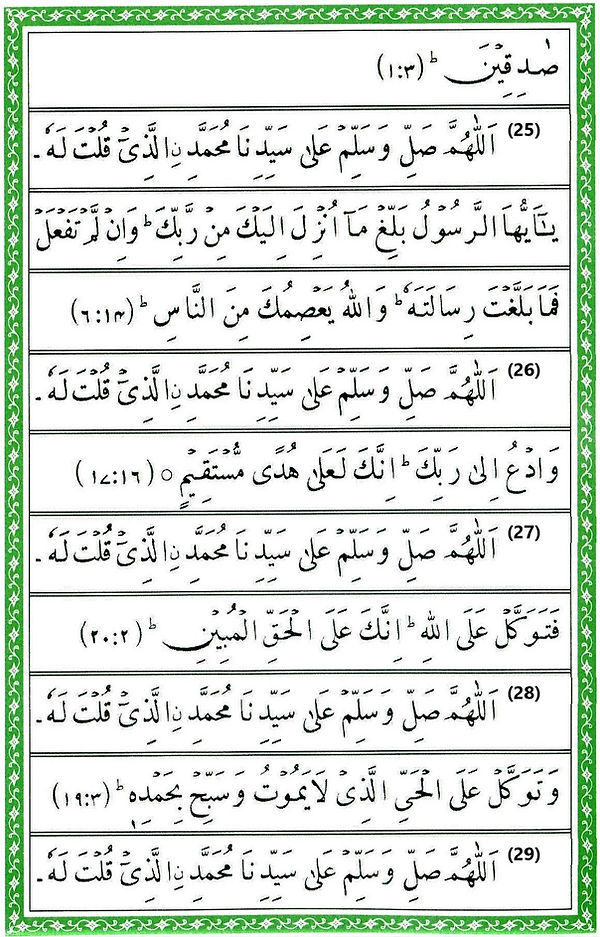 صٰدِقِيْنَ ؕ (۱:۳)
(25) اَللّٰهُمَّ صَلِّ وَسَلِّمْ عَلٰى سَيِّدِنَا مُحَمَّدِ نِ الَّذِىْ قُلْتَ لَهٗ ۔
يٰۤاَيُّهَا الرَّسُوْلُ بَلِّغْ مَاۤ اُنْزِلَ اِلَيْكَ مِنْ رَّبِّكَ ؕ وَاِنْ لَّمْ تَفْعَلْ
فَمَا بَلَّغْتَ رِسَالَتَهٗ ؕ وَاللّٰهُ يَعْصِمُكَ مِنَ النَّاسِ ؕ (۶:۱۴)
(26) اَللّٰهُمَّ صَلِّ وَسَلِّمْ عَلٰى سَيِّدِنَا مُحَمَّدِ نِ الَّذِىْ قُلْتَ لَهٗ ۔
وَادْعُ اِلٰى رَبِّكَ ؕ اِنَّكَ لَعَلٰى هُدًى مُّسْتَقِيْمٍ ○ (۱۷:۱۶)
(27) اَللّٰهُمَّ صَلِّ وَسَلِّمْ عَلٰى سَيِّدِنَا مُحَمَّدِ نِ الَّذِىْ قُلْتَ لَهٗ ۔
فَتَوَكَّلْ عَلَى اللّٰهِ ؕ اِنَّكَ عَلَى الْحَقِّ الْمُبِيْنِ ؕ (۲۰:۲)
(28) اَللّٰهُمَّ صَلِّ وَسَلِّمْ عَلٰى سَيِّدِنَا مُحَمَّدِ نِ الَّذِىْ قُلْتَ لَهٗ ۔
وَتَوَكَّلْ عَلَى الْحَىِّ الَّذِىْ لَا يَمُوْتُ وَسَبِّحْ بِحَمْدِهٖ ؕ (۱۹:۳)
(29) اَللّٰهُمَّ صَلِّ وَسَلِّمْ عَلٰى سَيِّدِنَا مُحَمَّدِ نِ الَّذِىْ قُلْتَ لَهٗ ۔